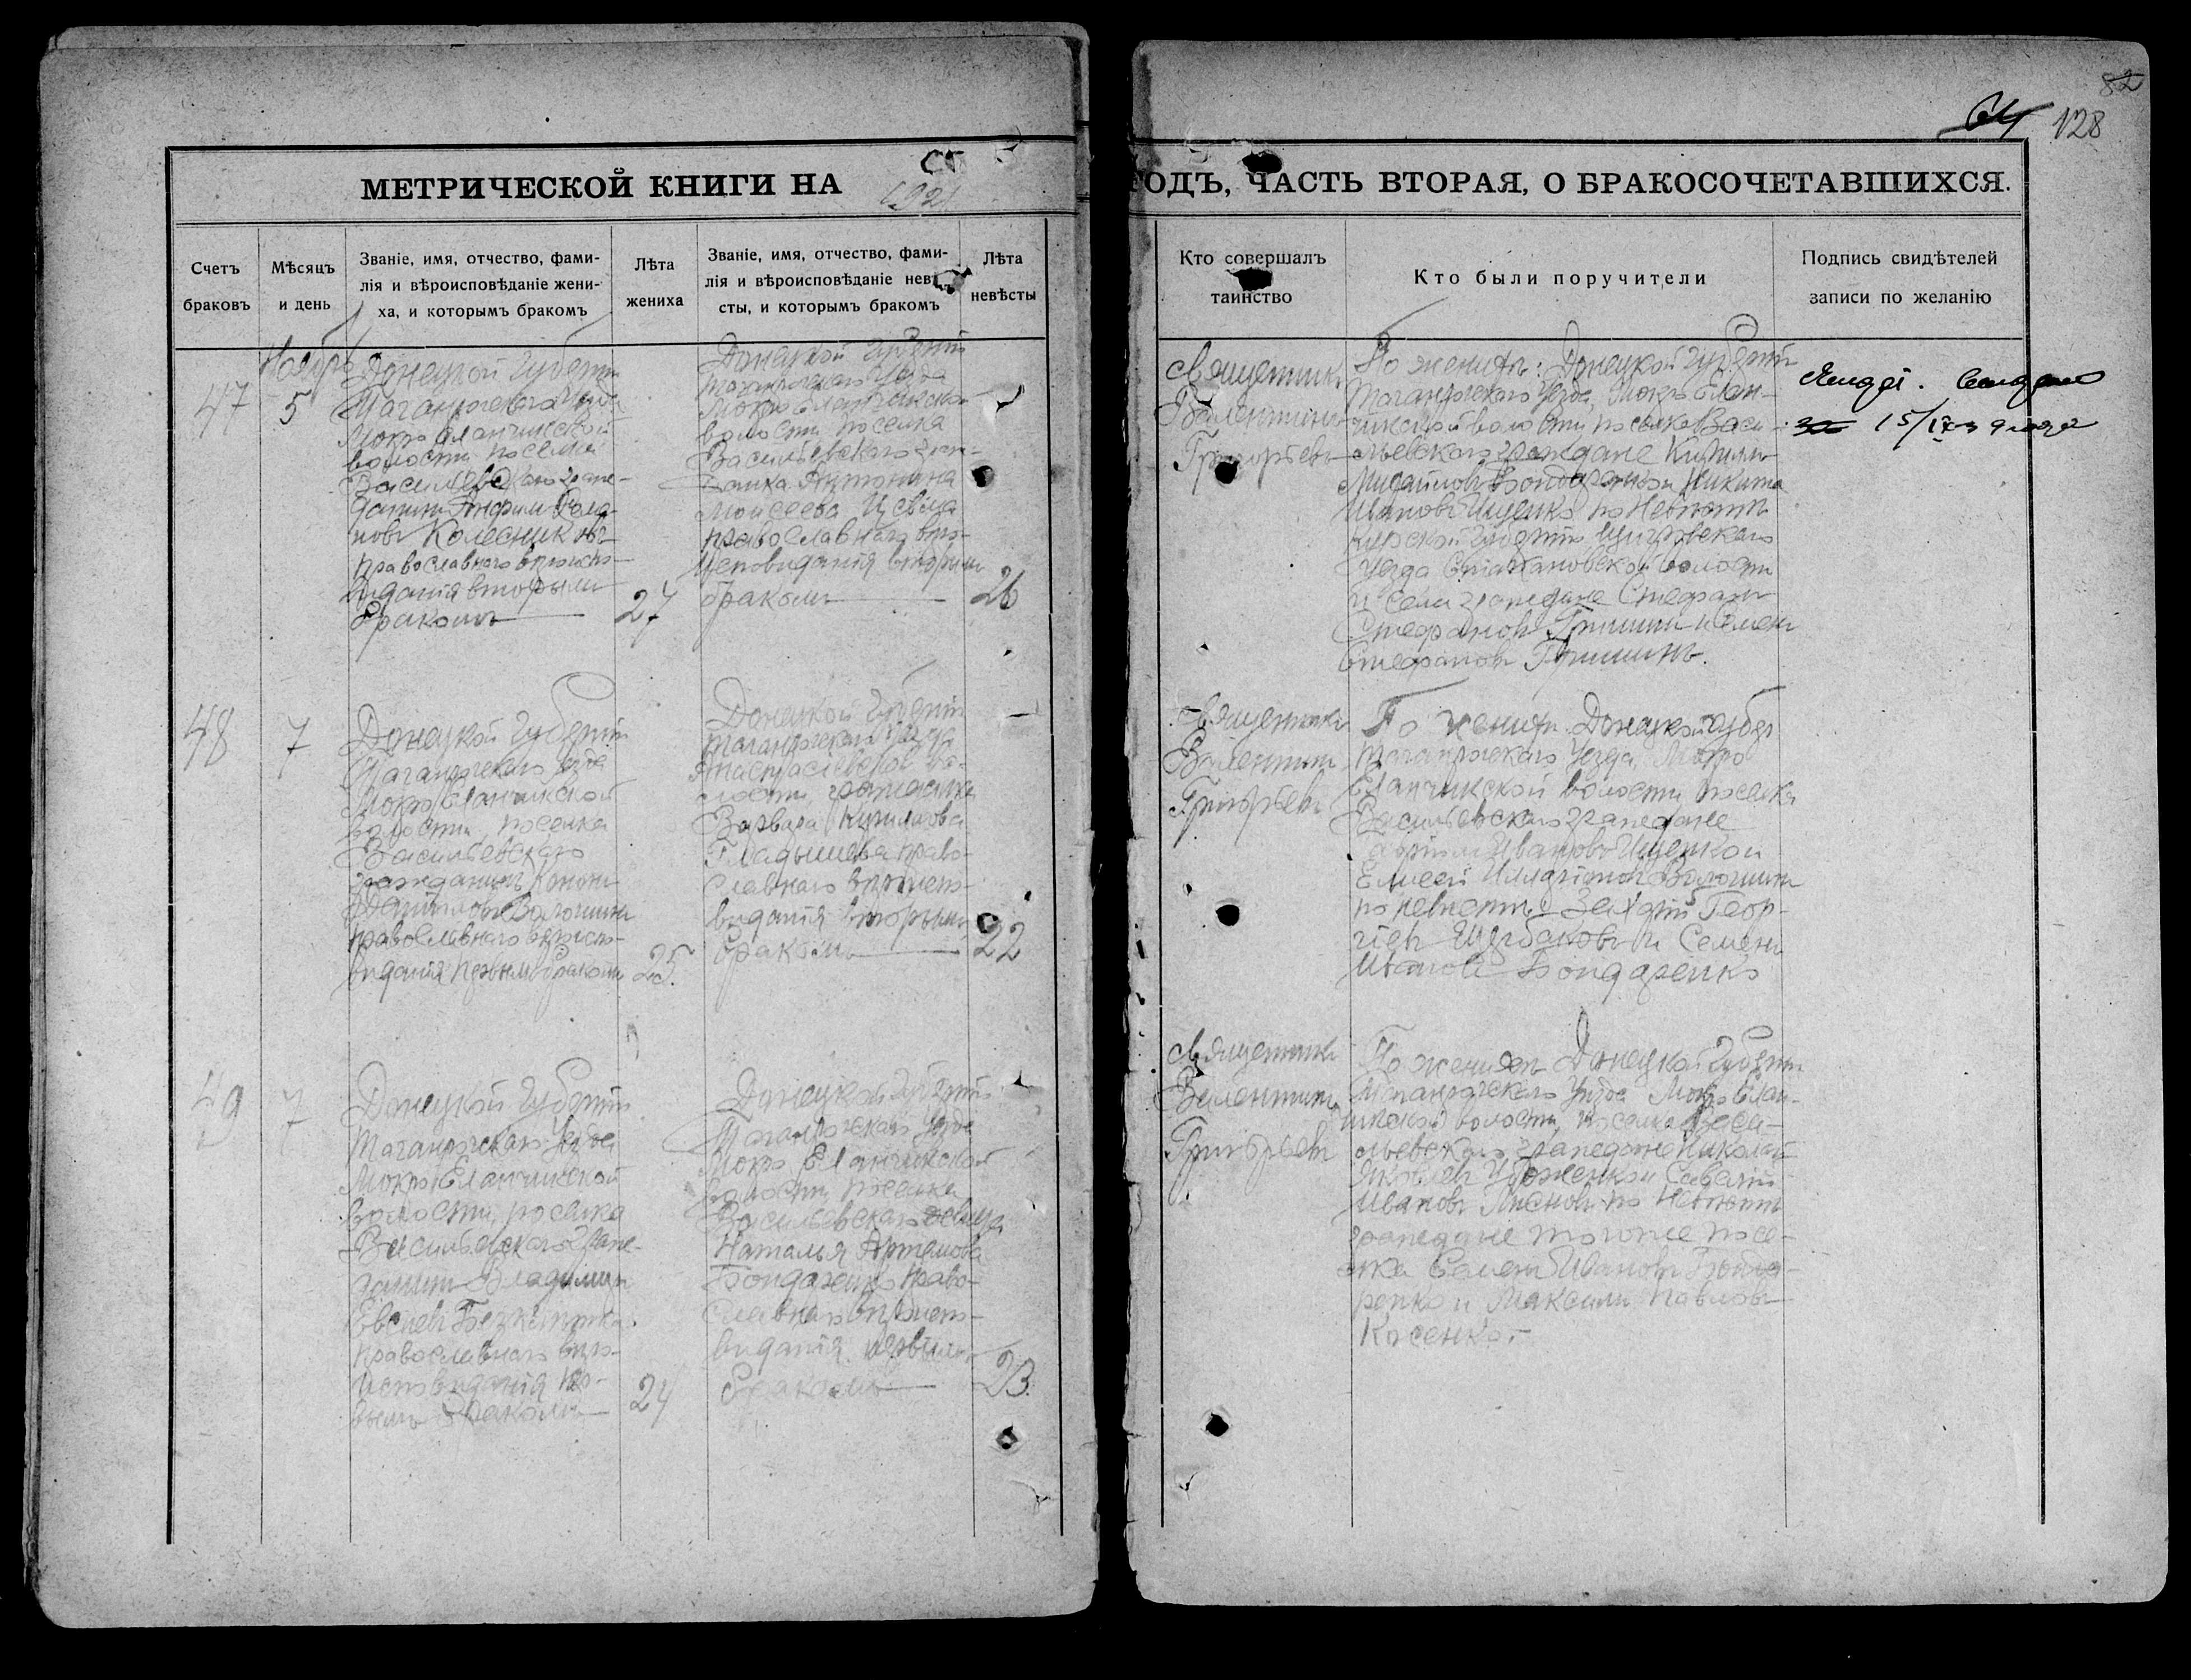 82
64 128
МЕТРИЧЕСКОЙ КНИГИ НА 1921
ГОДЪ, ЧАСТЬ ВТОРАЯ, О БРАКОСОЧЕТАВШИХСЯ.
Счетъ
браковъ
Мѣсяцъ
и день
Званіе, имя, отчество, фами-
лія и вѣроисповѣданіе жени-
ха, и которымъ бракомъ
Лѣта
жениха
Званіе, имя, отчество, фами-
лія и вѣроисповѣданіе невѣ-
сты, и которымъ бракомъ
Лѣта
невѣсты
Кто совершалъ
таинство
Кто были поручители
Подпись свидѣтелей
записи по желанію
47
Ноябрь
5
Донецкой Губерніи
Таганрогскаго Уѣзда
Мокро Еланчикской
волости поселка
Васильевскаго граж-
данинъ Рома-
новъ Колесниковъ
православнаго вѣроиспо-
виданія вторымъ
бракомъ
27
Донецкой Губерніи
Таганрогскаго Уѣзда
Мокро Еланчикской
волости поселка
Васильевскаго граж-
данка Антонина
Моисеева
православнаго вѣро-
исповиданія вторымъ
бракомъ
26
Священникъ
Валентинъ
Григорьевъ
По женихѣ: Донецкой Губерніи
Таганрогскаго Уезда, Мокро Елан-
чикской волости поселка Васи-
льевскаго граждане Кириллъ
Михайловъ Бондаренко и Никита
Ивановъ Ищенко по Невѣстѣ
Курской Губерніи Щигровскаго
Уезда волости
и села граждане Стефанъ
Стефановъ Гришинъ и Семенъ
Стефановъ Гришинъ.
48
7
Донецкой Губерніи
Таганрогскаго Уѣзда
Мокро Еланчикской
волости, поселка
Васильевскаго
гражданинъ
Даниловъ Волошинъ
православнаго вѣроиспо-
виданія первымъ бракомъ
25.
Донецкой Губерніи
Таганрогскаго Уѣзда
Анастасіевской во-
лости, гражданка
Варвара Кириллова
Гладышева право-
славнаго вѣроиспо-
виданія вторымъ
бракомъ
22
Священникъ
Валентинъ
Григорьевъ
По женихѣ Донецкой губер
Таганрогскаго Уезда, Мокро
Еланчикской волости, поселка
Васильевскаго граждане
Ивановъ Ищенко и
Елисей Волошинъ
по невѣстѣ Захарій Геор-
гіевъ Щербаковъ и Семенъ
Ивановъ Бондаренко
49
7
Донецкой Губерніи
Таганрогскаго Уезда
Мокро Еланчикской
волости, поселка
Васильевскаго граж-
данинъ Владимиръ
Евсіевъ
православнаго вѣро-
исповиданія пер-
вымъ бракомъ
24
Донецкой Губерніи
Таганрогскаго Уезда
Мокро Еланчикской
волости, поселка
Васильевскаго девица
Наталья Артемова
Бондаренко право-
славнаго вѣроиспо-
виданія первымъ
бракомъ
23.
Священникъ
Валентинъ
Григорьевъ
По женихѣ Донецкой Губерніи
Таганрогскаго Уѣзда Мокро Елан-
чикской волости, поселка Васи-
льевскаго граждане Николай
Яковлевъ и Савелій
Ивановъ по Невѣстѣ
граждане того же посе-
лка Семенъ Ивановъ Бонда-
ренко и Максимъ Павловъ
Косенко.